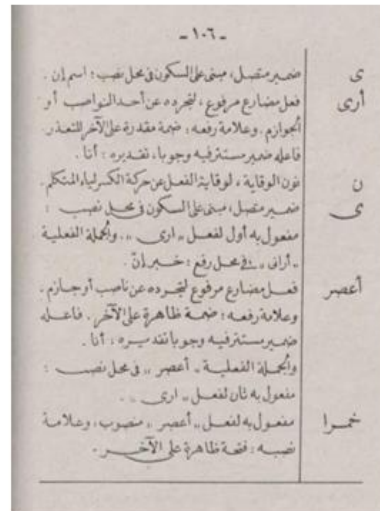 - ١٠٦ -
ى ضمير متصل، مبنى على السكون فى محل نصب : اسم إن .
أرى فعل مضارع مرفوع ، لتجرده عن أحد النواصب أو
الجوازم . وعلامة رفعه : ضمة مقدرة على الآخر للتعذر .
فاعله ضمير مستتر فيه وجوبا ، تقديره : أنا .
ن نون الوقاية ، لوقاية الفعل عن حركة الكسر لياء المتكلم .
ى ضمير متصل ، مبنى على السكون فى محل نصب :
مفعول به أول لفعل „ ارى „ . والجملة الفعلية
„ أرانى „ فى محل رفع : خبر إنّ .
أعصر فعل مضارع مرفوع لتجرده عن ناصب أو جازم .
وعلامة رفعه : ضمة ظاهرة على الآخر . فاعله
ضمير مستتر فيه وجوبا تقديره : أنا .
والجملة الفعلية „ أعصر „ فى محل نصب :
مفعول به ثان لفعل „ ارى „ .
خمرا مفعول به لفعل „ أعصر „ منصوب ، وعلامة
نصبه : فتحة ظاهرة على الآخر .